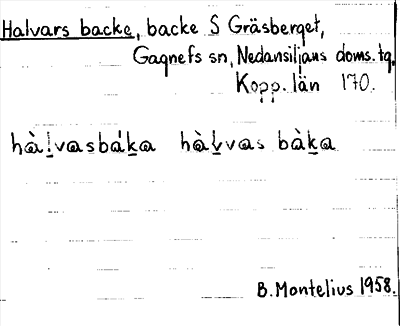 Halvars backe, backe S Gräsberget,
Gagnefs sn, Nedansiljans doms. tg.
Kopp. län 170.
hàl̩vasbák̲a hàl̲vas bàk̲a
B. Montelius 1958.